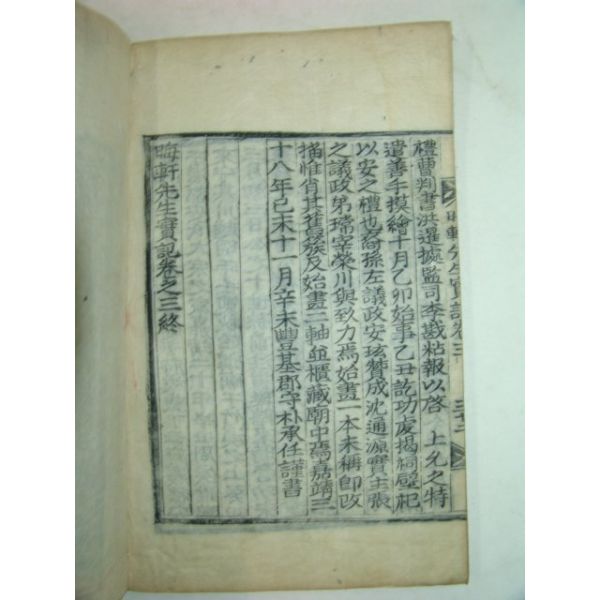 晦軒先生實記卷三 三十二
禮曹判書洪暹據監司李戡粘報以啓 上允之特
遣善手摸繪十月乙卯始事乙丑訖功處揭祠壁祀
以安之禮也裔孫左議政安玹贊成沈通源實主張
之議政弟瑞宰榮川與致力焉始畫一本未稱卽改
描惟肖其舊簇及始畫二軸並櫃藏廟中焉嘉靖三
十八年己未十一月辛未豐基郡守朴承任謹書
晦軒先生實記卷之三終